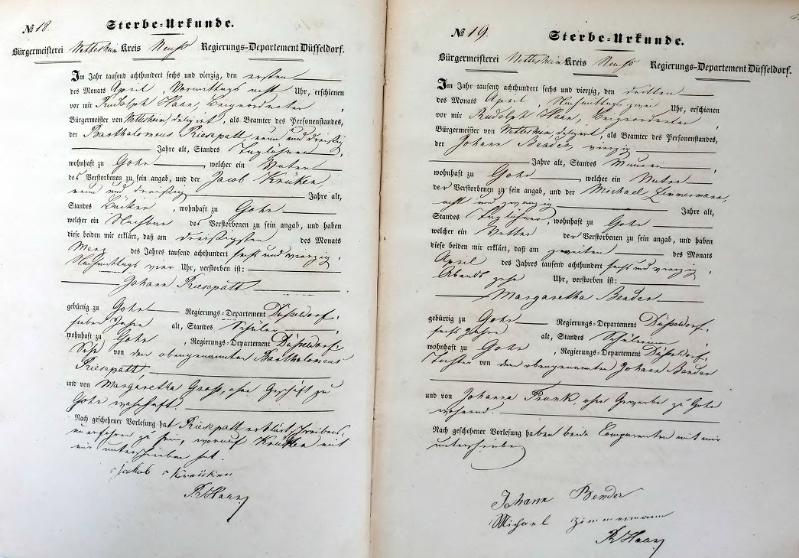 № 18.
Sterbe-Urkunde.
Bürgermeisterei Nettesheim Kreis Neuß Regierungs-Departement Düsseldorf.
Im Jahr tausend achthundert sechs und vierzig, den ersten
des Monats April, Vormittags acht Uhr, erschienen
vor mir Rudolph Haas, Beigeordneter
Bürgermeister von Nettesheim delegirt, als Beamter des Personenstandes,
der Bartholomeus Piespatt neun und dreißig
Jahre alt, Standes Taglöhner,
wohnhaft zu Gohr, welcher ein Vater
des Verstorbenen zu sein angab, und der Jacob Krücken,
neun und dreißig Jahre alt,
Standes, wohnhaft zu Gohr,
welcher ein Nachbar des Verstorbenen zu sein angab, und haben
diese beiden mir erklärt, daß am dreißigsten des Monats
März des Jahres tausend achthundert sechs und vierzig,
Nachmittags vier Uhr, verstorben ist:
Johann Piespatt
gebürtig zu Gohr Regierungs-Departement Düsseldorf,
sieben Jahre alt, Standes Schüler
wohnhaft zu Gohr, Regierungs-Departement Düsseldorf,
Sohn von dem obengenannten Bartholomeus
Piespatt,
und von Margaretha Gross, ohne Geschäft zu
Gohr wohnhaft.
Nach geschehener Vorlesung hat Piespatt erklärt, schreibens
unerfahren zu sein, worauf Krücken mit
mir unterschrieben hat.
Jakob Krücken
R Haas
№ 19.
Sterbe-Urkunde.
Bürgermeisterei Nettesheim Kreis Neuß Regierungs-Departement Düsseldorf.
Im Jahr tausend achthundert sechs und vierzig, den dritten
des Monats April, Nachmittags zwei Uhr, erschienen
vor mir Rudolph Haas, Beigeordneter
Bürgermeister von Nettesheim delegirt, als Beamter des Personenstandes,
der Johann Bender, vierzig
Jahre alt, Standes Maurer
wohnhaft zu Gohr welcher ein Vater
der Verstorbenen zu sein angab, und der Michael Zimmermann,
acht und zwanzig Jahre alt,
Standes Taglöhner, wohnhaft zu Gohr
welcher ein Vetter der Verstorbenen zu sein angab, und haben
diese beiden mir erklärt, daß am zweiten des Monats
April des Jahres tausend achthundert sechs und vierzig,
Abends zehn Uhr, verstorben ist:
Margaretha Bender
gebürtig zu Gohr Regierungs-Departement Düsseldorf,
sechs Jahre alt, Standes Schülerinn
wohnhaft zu Gohr, Regierungs-Departement Düsseldorf,
Tochter von dem obengenannten Johann Bender
und von Johanna ohne Gewerbe zu Gohr
wohnend
Nach geschehener Vorlesung haben beide Comparenten mit mir
unterschrieben
Johann Bender
Michael Zimmermann
R Haas